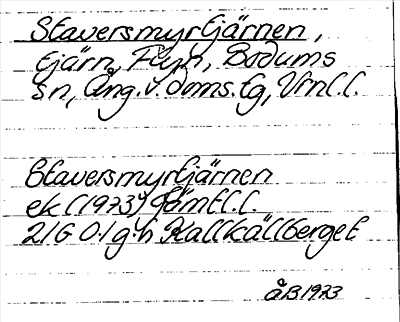 Staversmyrtjärnen,
tjärn, Flyn, Bodums
sn, Ång.v.doms.tg, Vrnl.l.
Staversmyrtjärnen
ek (1973) Jämtl.l.
21G 0-1 g-h Kallkällberget
åB1973